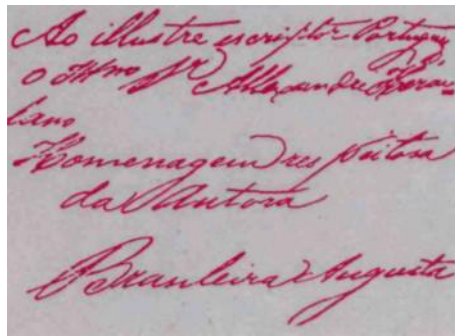 Ao illustre escriptor Portuguez
o Illmo Sr Allexandre Hercu
lano
Homenagem respeitosa
da Autora
Brasileira Augusta